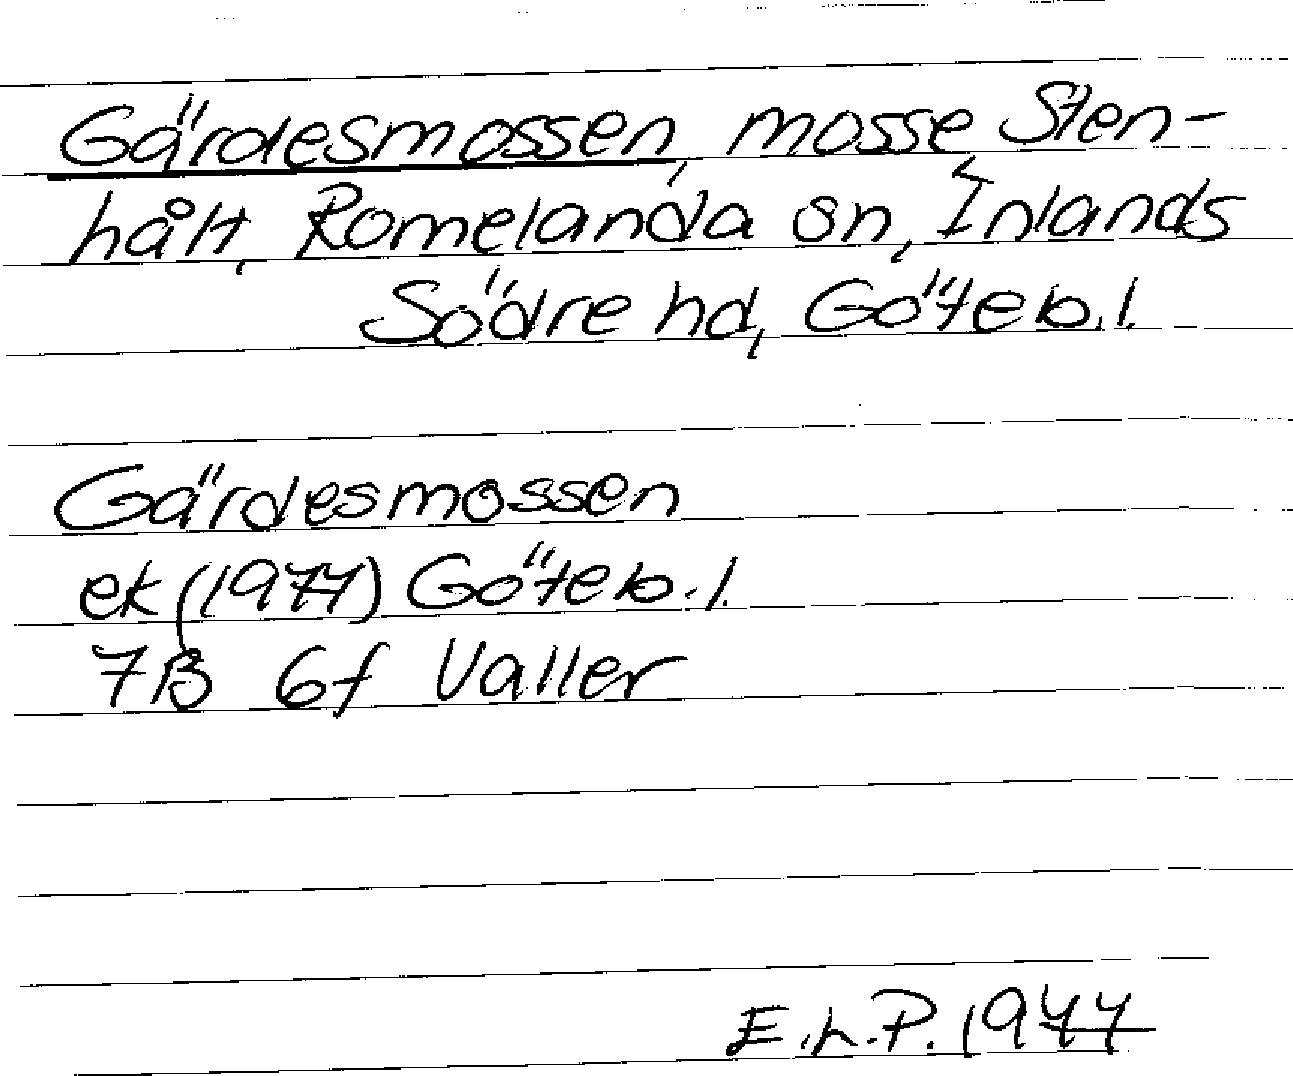 Gärdesmossen, mosse, Sten-
hålt, Romelanda sn, Inlands
Södre hd, Göteb.l.
Gärdesmossen
ek (1977) Göteb.l.
7B 6f Valler
E.L.P. 1977